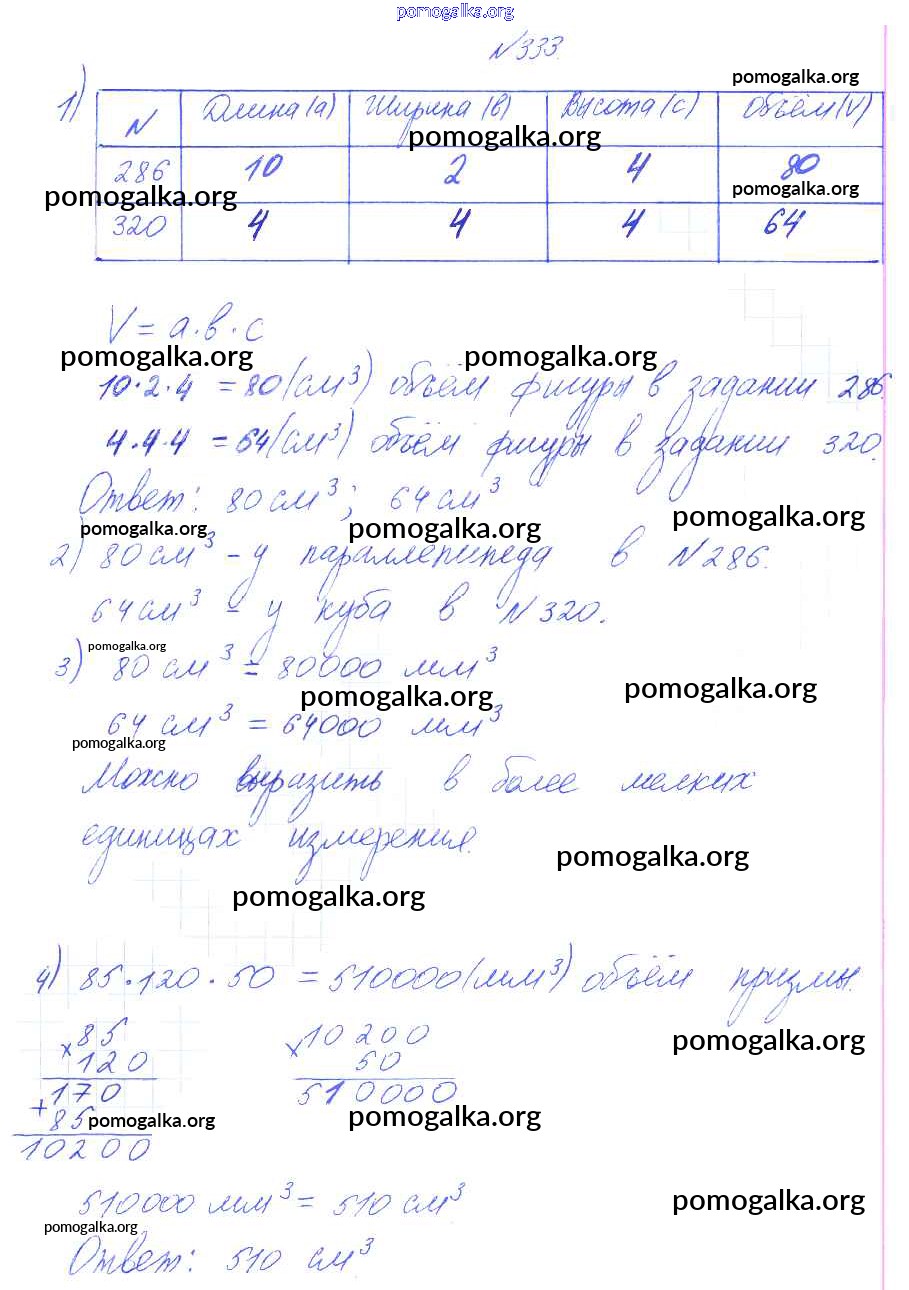 pomogalka.org
N333.
pomogalka.org
1)
N Длина (a) Ширина (b) Высота (c) Объём (V)
pomogalka.org
286 10 2 4 80
pomogalka.org pomogalka.org
320 4 4 4 64
V = a · b · c
pomogalka.org pomogalka.org
10 · 2 · 4 = 80 (см³) объём фигуры в задании 286.
4 · 4 · 4 = 64 (см³) объём фигуры в задании 320.
Ответ: 80 см³; 64 см³
pomogalka.org pomogalka.org pomogalka.org
2) 80 см³ - у параллепипеда в N286.
64 см³ - у куба в N320.
pomogalka.org
3) 80 см³ = 80000 мм³
pomogalka.org pomogalka.org
64 см³ = 64000 мм³
pomogalka.org
Можно выразить в более мелких
единицах измерения.
pomogalka.org
pomogalka.org
4) 85 · 120 · 50 = 510000 (мм³) объём призмы.
× 85 × 10200
pomogalka.org
120 50
170 510000
+ 85
pomogalka.org pomogalka.org
10200
510000 мм³ = 510 см³
pomogalka.org pomogalka.org
Ответ: 510 см³